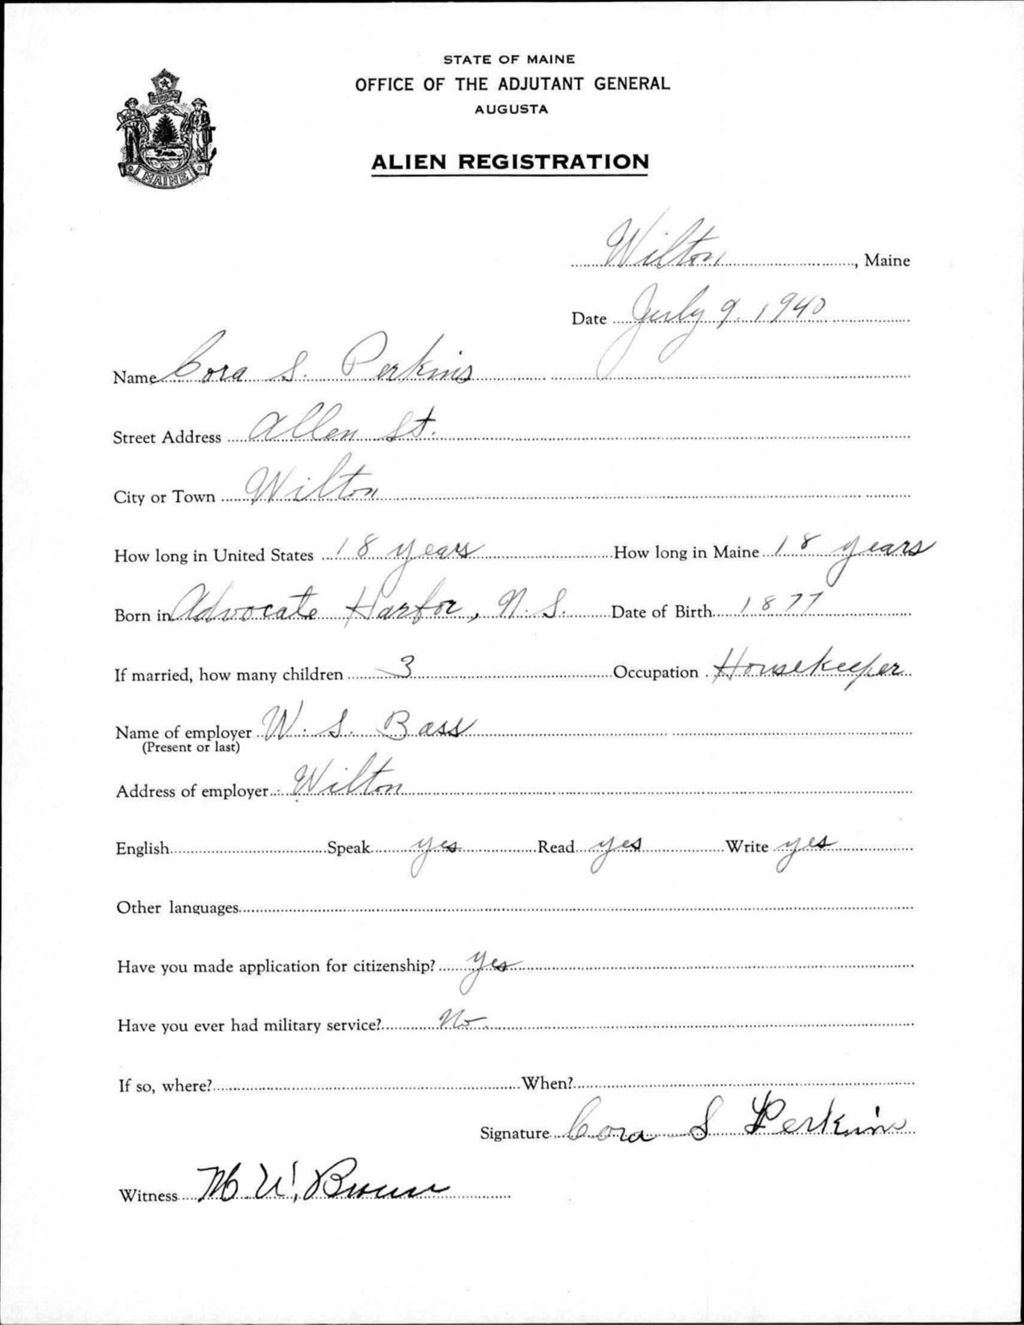 STATE OF MAINE
OFFICE OF THE ADJUTANT GENERAL
AUGUSTA
ALIEN REGISTRATION
MAINE
Wilton, Maine
Date July 9, 1940
Name Cora S. Perkins
Street Address Allen St.
City or Town Wilton
How long in United States 18 years How long in Maine 18 years
Born in Advocate Harbor, N.S. Date of Birth 1877
If married, how many children 3 Occupation Housekeeper
Name of employer W. S. Bass
(Present or last)
Address of employer Wilton
English Speak yes Read yes Write yes
Other languages
Have you made application for citizenship? Yes
Have you ever had military service? No.
If so, where? When?
Signature Cora S Perkins
Witness M. W. Brown